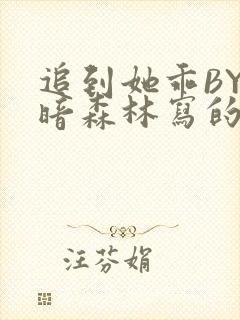 追到她乖BY
暗森林寫的
汪芬娟